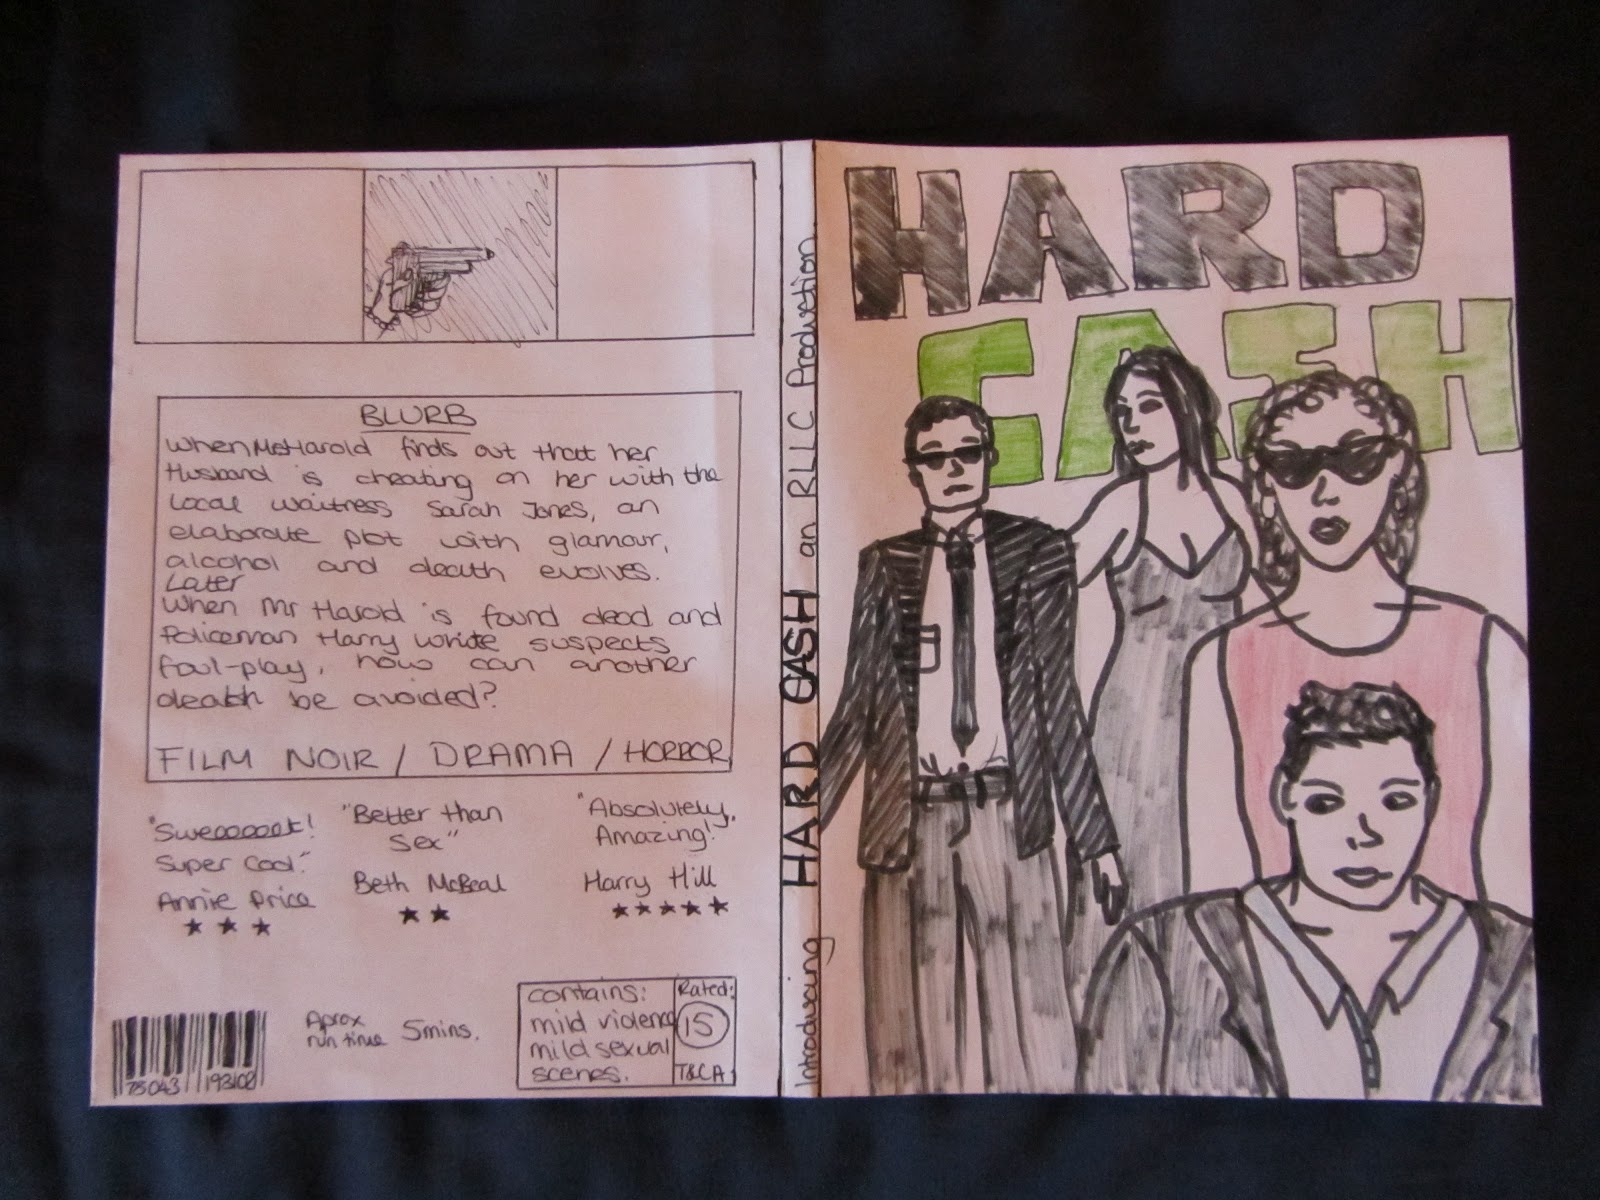 BLURB
When Ms Harold finds out that her
Husband is cheating on her with the
Local waitress Sarah Jones, an
elaborate plot with glamour,
alcohol and death evolves.
Later
When Mr Harold is found dead and
Policeman Harry White suspects
foul-play, how can another
death be avoided?
FILM NOIR / DRAMA / HORROR
"Sweeooeet!
Super Cool."
Annie Price
★ ★ ★
"Better than
Sex"
Beth McBeal
★ ★
"Absolutely,
Amazing!"
Harry Hill
★★★★★
75043 193108
Aprox
run time 5mins.
contains:
mild violence
mild sexual
scenes.
Rated:
15
T&CA
Introducing HARD CASH an RLLC Production
HARD
CASH